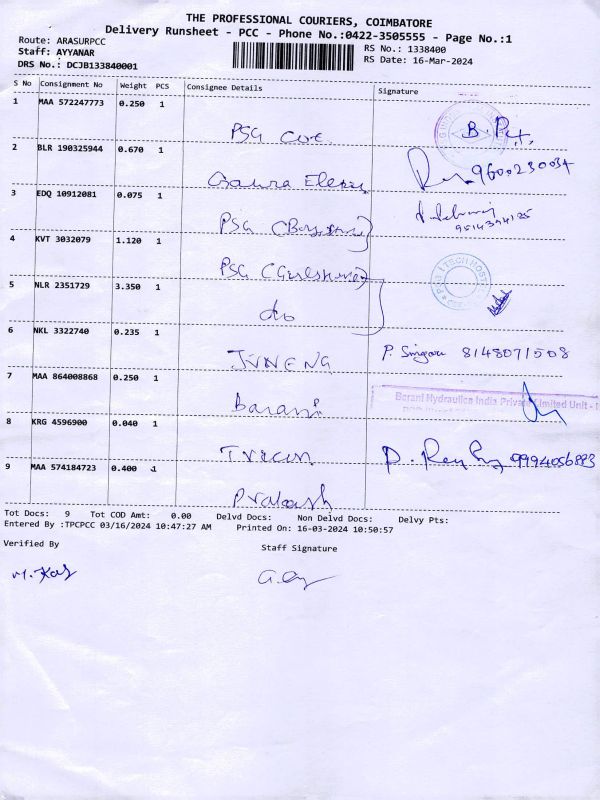 THE PROFESSIONAL COURIERS, COIMBATORE
Delivery Runsheet - PCC - Phone No.:0422-3505555 - Page No.:1
Route: ARASURPCC
RS No.: 1338400
Staff: AYYANAR
RS Date: 16-Mar-2024
DRS No.: DCJB133840001
S No Consignment No Weight PCS Consignee Details Signature
1 MAA 572247773 0.250 1
PSG
2 BLR 190325944 0.670 1
9600230034
3 EDQ 10912081 0.075 1
PSG
9514394125
4 KVT 3032079 1.120 1
PSG
5 NLR 2351729 3.350 1
do
6 NKL 3322740 0.235 1
P. 8148071508
7 MAA 864008868 0.250 1
Barani Hydraulics India Private Limited Unit - I
Barani
8 KRG 4596900 0.040 1
9994056883
9 MAA 574184723 0.400 1
Prakash
Tot Docs: 9 Tot COD Amt: 0.00 Delvd Docs: Non Delvd Docs: Delvy Pts:
Entered By :TPCPCC 03/16/2024 10:47:27 AM Printed On: 16-03-2024 10:50:57
Verified By
Staff Signature